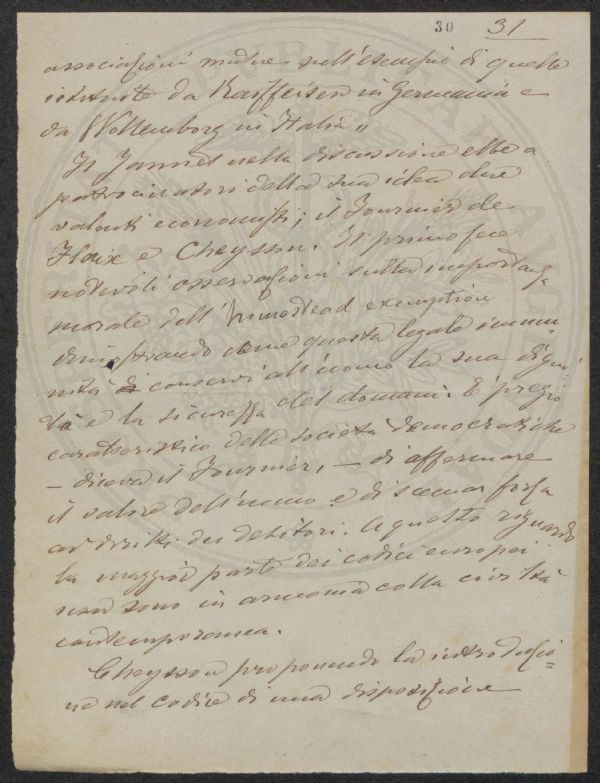 30 31
associazioni mutue sull'esempio di quelle
istituite da Raiffeisen in Germania e
da Wollemborg in Italia „
Il Jannet nella discussione ebbe a
patrocinatori della sua idea due
valenti economisti; il Fournier de
Flaix e Cheysson. Il primo fece
notevoli osservazioni sulla importanza
morale dell'homestead exemption
dimostrando come questa legale immu
nità conservi all'uomo la sua digni
tà e la sicurezza del domani. È pregio
caratteristico delle società democratiche
— diceva il Fournier, — di affermare
il valore dell'uomo e di scemar forza
ai diritti dei debitori. A questo riguardo
la maggior parte dei codici europei
non sono in armonia colla civiltà
contemporanea.
Cheysson proponendo la introduzio=
ne nel codice di una disposizione
PVBLICAE